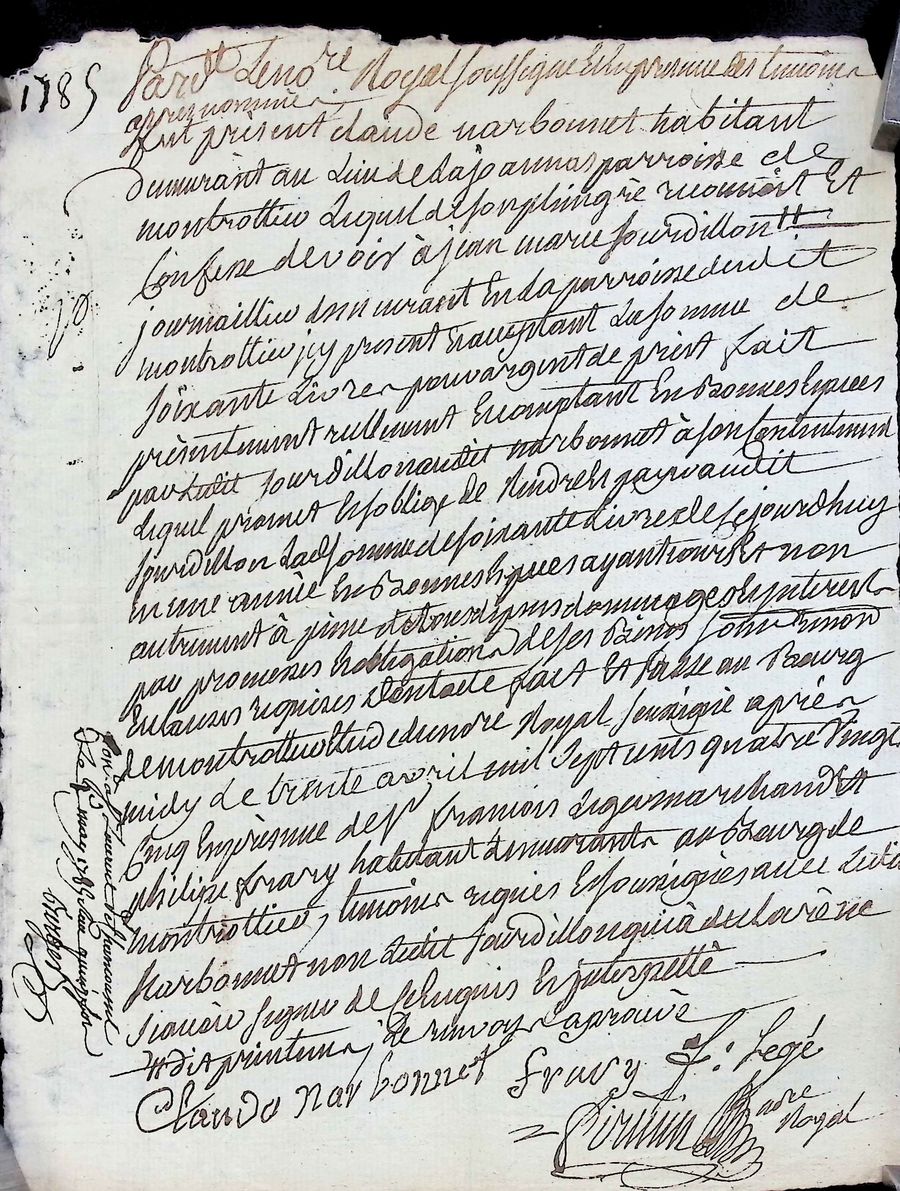 1785
Pardt Le nore Royal soussigné et en presence des temoins
apres nommés
fut présent claude narbonnet habitant
demeurant au Lieu de Lajoannas parroisse de
montrottier Lequel de son plein gré reconnoit Et
Confesse devoir à jean marie sourdillon #
journaillier demeurant En La parroisse dudit
montrottier jcy present Et acceptant La somme de
soixante Livres pour argent de prest fait
présentement réellement Et comptant En Bonnes Especes
par Ledit sourdillon audit narbonnet à son Contentement
Lequel promet Et soblige de Rendre Et payer audit
sourdillon Lad somme de soixante Livres de Cejourdhuy
en une année En Bonnes Especes ayant cours Et non
autrement à peine de tous depens dommages Et jnterests
par promesses Et obligation de ses Biens
Et clauses requises Dont acte fait Et Passé au Bourg
de montrottier Etude du nore Royal soussigné après
midy Le trente avril mil sept cents quatre Vingt
Cinq En présence de Sr francois Leger marchand Et
philipe frary habitant demeurants au Bourg de
montrottier, temoins requis Et soussignés avec Ledit
Narbonnet non Ledit sourdillon qui à declaré ne
scavoir signer de Ce Enquis Et jnterpellé
# dit printems, Le renvoy aprouvé
Claude Narbonnet frary f: Legé
nore
Royal